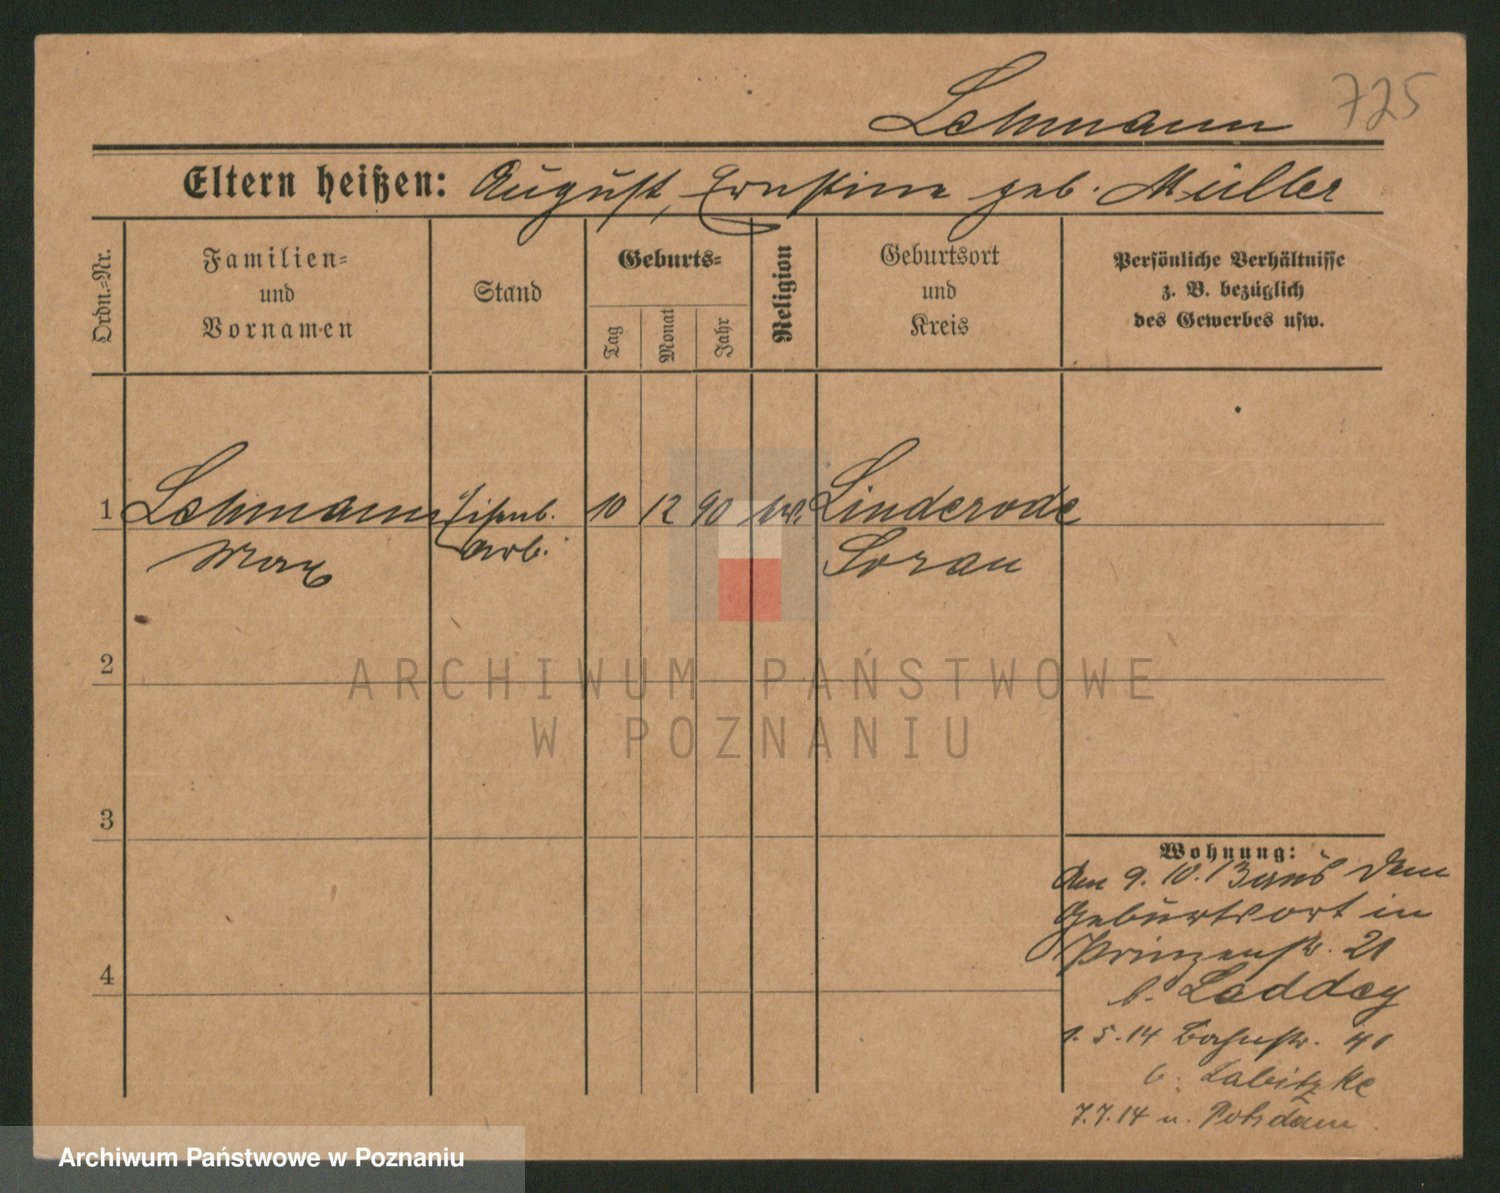 725
Lehmann
Eltern heißen: August, Ernstine geb. Müller
Ordn.=Nr.
Familien=
und
Vornamen
Stand
Geburts=
Tag
Monat
Jahr
Religion
Geburtsort
und
Kreis
Persönliche Verhältnisse
z. B. bezüglich
des Gewerbes usw.
1 Lehmann Eisenb. 10 12 90 ev. Linderode
Max arb. Sorau
2
3
4
Wohnung:
Am 9.10.13 aus dem
Geburtsort in
Prinzenstr. 21
b. Laddey
1.5.14 Bahnstr. 41
b. Labitzke
7.7.14 n. Potsdam.
ARCHIWUM PAŃSTWOWE
W POZNANIU
Archiwum Państwowe w Poznaniu